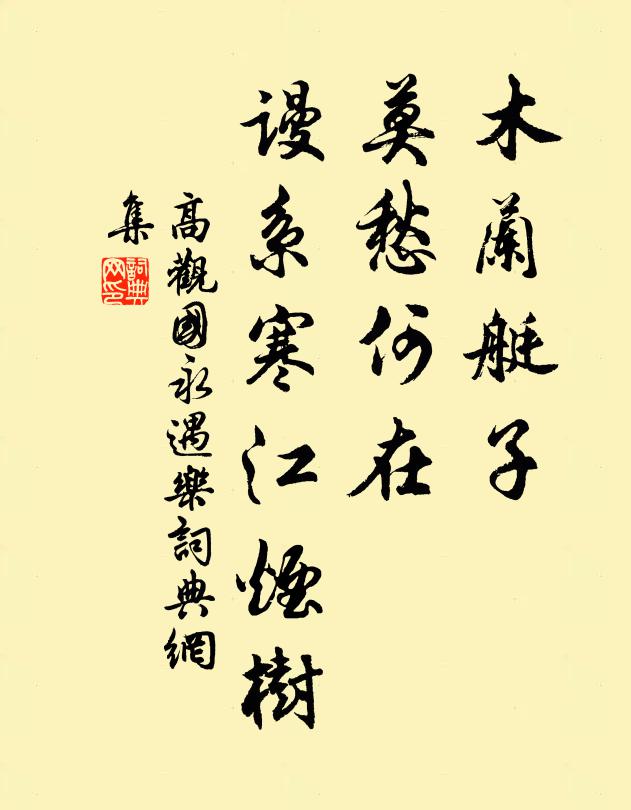 木蘭艇子
莫愁何在
謾系寒江煙樹
高觀國永遇樂詞典網
集
詞典
网印